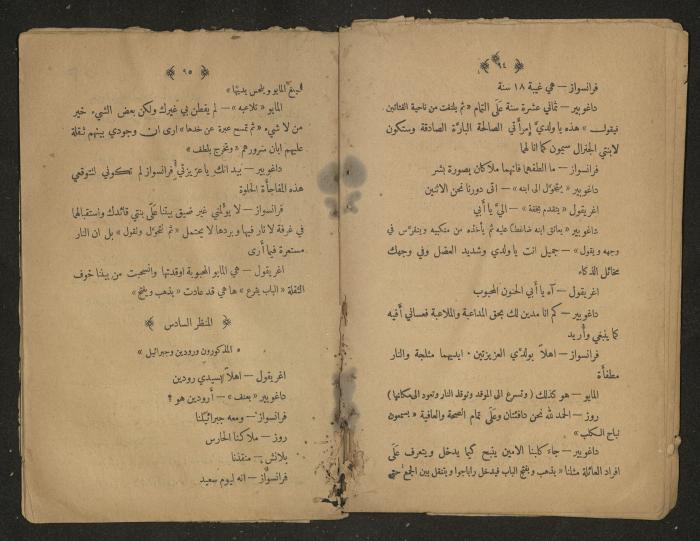 ﴿ ٦٤ ﴾
فرانسواز — هي غيبة ١٨ سنة
داغوبير — ثماني عشرة سنة على التمام «ثم يلتفت من ناحية الفتاتين
فيقول» هذه يا ولديَّ إمرأتي الصالحة البارَّة الصادقة وستكون
لابنتي الجنرال سيمون كما انا لهما
فرانسواز — ما الطفهما فانهما ملاكان بصورة بشر
داغوبير «يتحوَّل الى ابنه» — اتى دورنا نحن الاثنين
اغريقول «يتقدم بخفة» — اليَّ يا أبي
داغوبير «يعانق ابنه ضاغطاً عليه ثم يأخذه من منكبيه ويتفرَّس في
وجهه ويقول» — جميل انت يا ولدي وشديد العضل وفي وجهك
مخائل الذكاء
اغريقول — آه يا أبي الحنون المحبوب
داغوبير — كم انا مدين لك بحق المداعبة والملاعبة فعساني أفيه
كما ينبغي وأريد
فرانسواز — اهلاً بولديَّ العزيزتين ٠ ايديهما مثلجة والنار
مطفأة
المايو — هو كذلك (وتسرع الى الموقد وتوقد النار وتعود الى مكانها)
روز — الحمد لله نحن دافئتان وعلى تمام الصحة والعافية «يسمعون
نباح الكلب»
داغوبير — جاء كلبنا الامين ينبح كيما يدخل ويتعرف على
افراد العائلة مثلنا «يذهب ويفتح الباب فيدخل راباجوا ويتنقل بين الجمع حتى
﴿ ٦٥ ﴾
يبلغ المايو ويلحس يديها»
المايو «تلاعبه» — لم يفطن بي غيرك ولكن بعض الشيء خير
من لا شيء «ثم تمسح عبرة عن خدها» ارى ان وجودي بينهم ثقلة
عليهم ابان سرورهم «وتخرج بلطف»
داغوبير — بيد انك يا عزيزتي فرانسواز لم تكوني لتتوقعي
هذه المفاجأة الحلوة
فرانسواز — لا يؤلمني غير ضيق بيتنا على بنتي قائدك واستقبالهما
في غرفة لا نار فيها وبردها لا يحتمل «ثم تتحوَّل وتقول» بل ان النار
مستعرة فيما أرى
اغريقول — هي المايو المحبوبة اوقدتها وانسحبت من بيننا خوف
الثقلة «الباب يقرع» ها هي قد عادت «يذهب ويفتح»
﴿ المنظر السادس ﴾
«المذكورون ورودين وجبرائيل»
اغريقول — اهلاً بسيدي رودين
داغوبير «بعنف» — أرودين هو ؟
فرانسواز — ومعه جبرائيلنا
روز — ملاكنا الحارس
بلانش — منقذنا
فرانسواز — انه ليوم سعيد